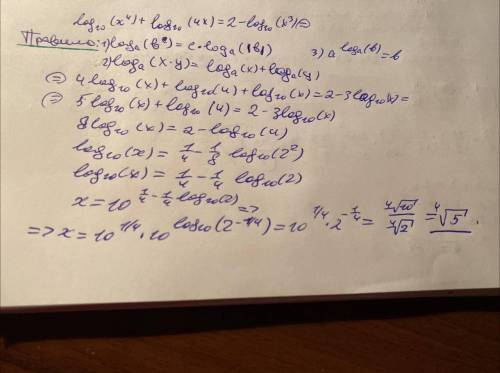 log₁₀(x⁴)+log₁₀(4x)=2-log₁₀(x³)⇔
Правило: 1) logₐ(bᶜ)=c·logₐ(|b|) 3) a^(logₐ(b))=b
2) logₐ(x·y)=logₐ(x)+logₐ(y)
⇔ 4log₁₀(x)+log₁₀(4)+log₁₀(x)=2-3log₁₀(x)⇔
⇔ 5log₁₀(x)+log₁₀(4)=2-3log₁₀(x)
8log₁₀(x)=2-log₁₀(4)
log₁₀(x)=1/4-1/8 log₁₀(2²)
log₁₀(x)=1/4-1/4 log₁₀(2)
x=10^(1/4-1/4 log₁₀(2)) =>
=> x=10^(1/4)·10^(log₁₀(2^(-1/4)))=10^(1/4)·2^(-1/4)=⁴√10/⁴√2=⁴√5.